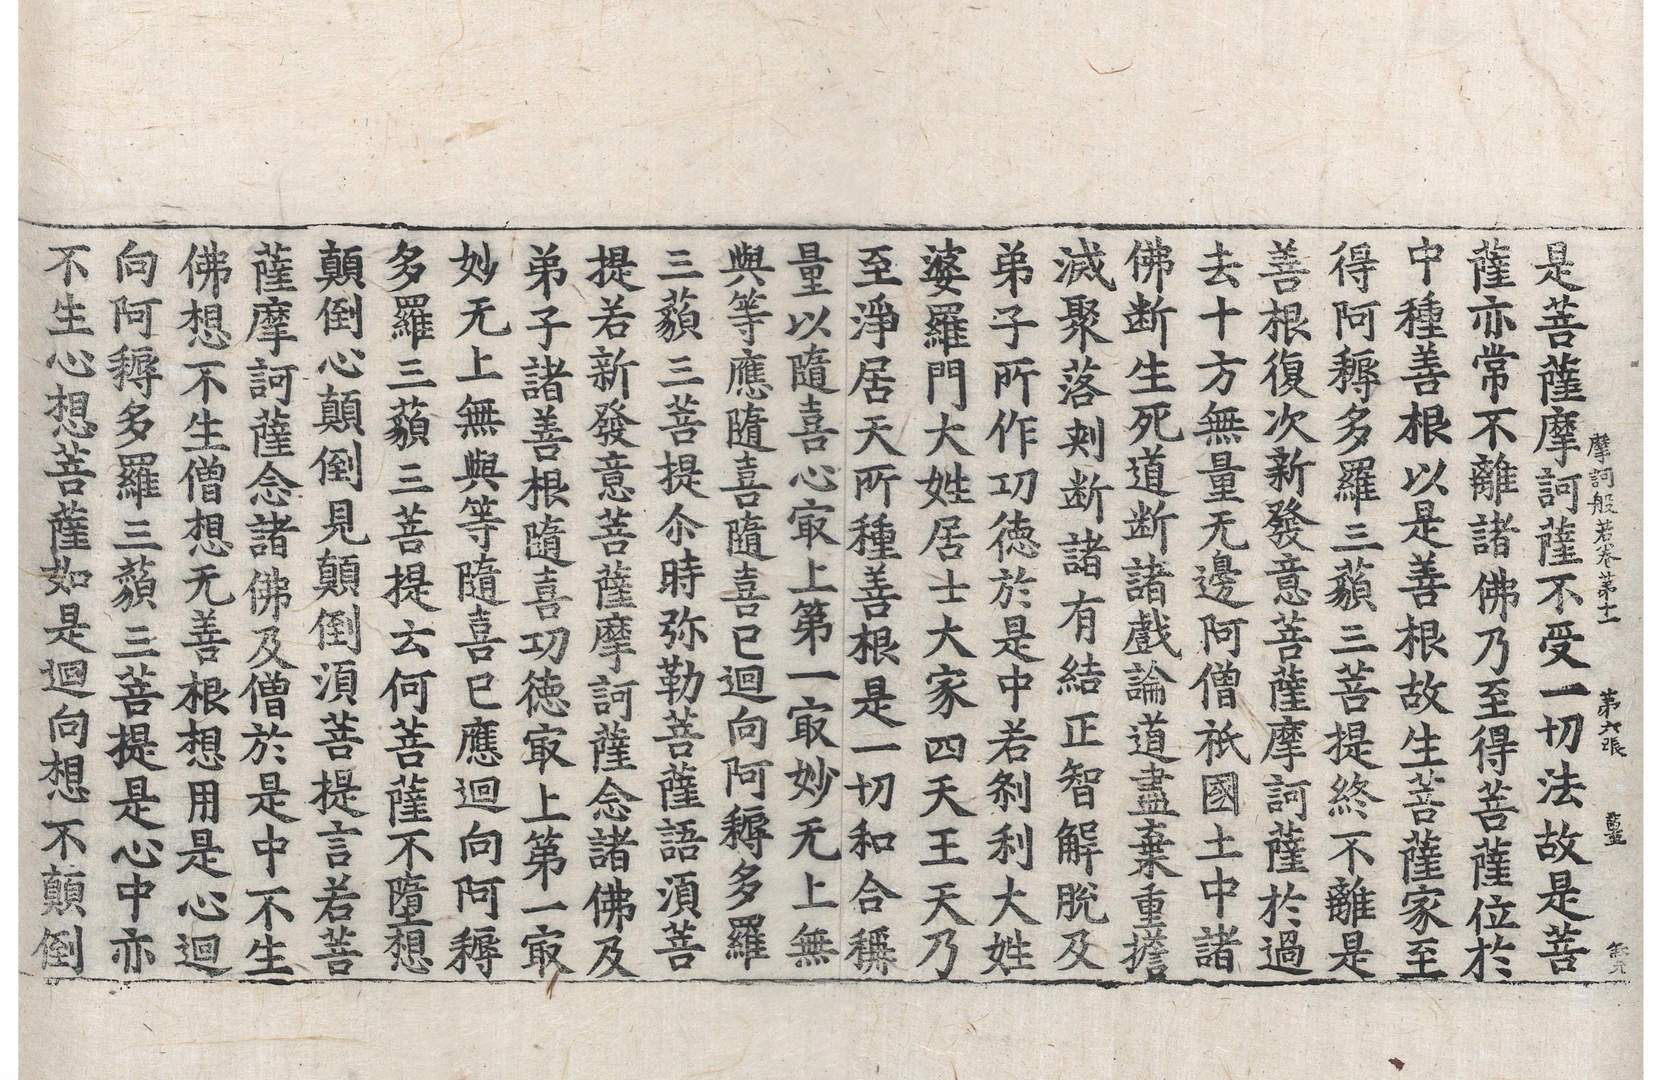 摩訶般若卷第十一 第六張 薑
是菩薩摩訶薩不受一切法故是菩
薩亦常不離諸佛乃至得菩薩位於
中種善根以是善根故生菩薩家至
得阿耨多羅三藐三菩提終不離是
善根復次新發意菩薩摩訶薩於過
去十方無量无邊阿僧祇國土中諸
佛断生死道断諸戲論道盡棄重擔
滅聚落刾断諸有結正智解脫及
弟子所作功徳於是中若刹利大姓
婆羅門大姓居士大家四天王天乃
至淨居天所種善根是一切和合稱
量以隨喜心㝡上第一㝡妙无上無
與等應隨喜隨喜已迴向阿耨多羅
三藐三菩提尒時弥勒菩薩語湏菩
提若新發意菩薩摩訶薩念諸佛及
弟子諸善根隨喜功徳㝡上第一㝡
妙无上無與等隨喜已應迴向阿耨
多羅三藐三菩提云何菩薩不墮想
顛倒心顛倒見顛倒湏菩提言若菩
薩摩訶薩念諸佛及僧於是中不生
佛想不生僧想无善根想用是心迴
向阿耨多羅三藐三菩提是心中亦
不生心想菩薩如是迴向想不顛倒